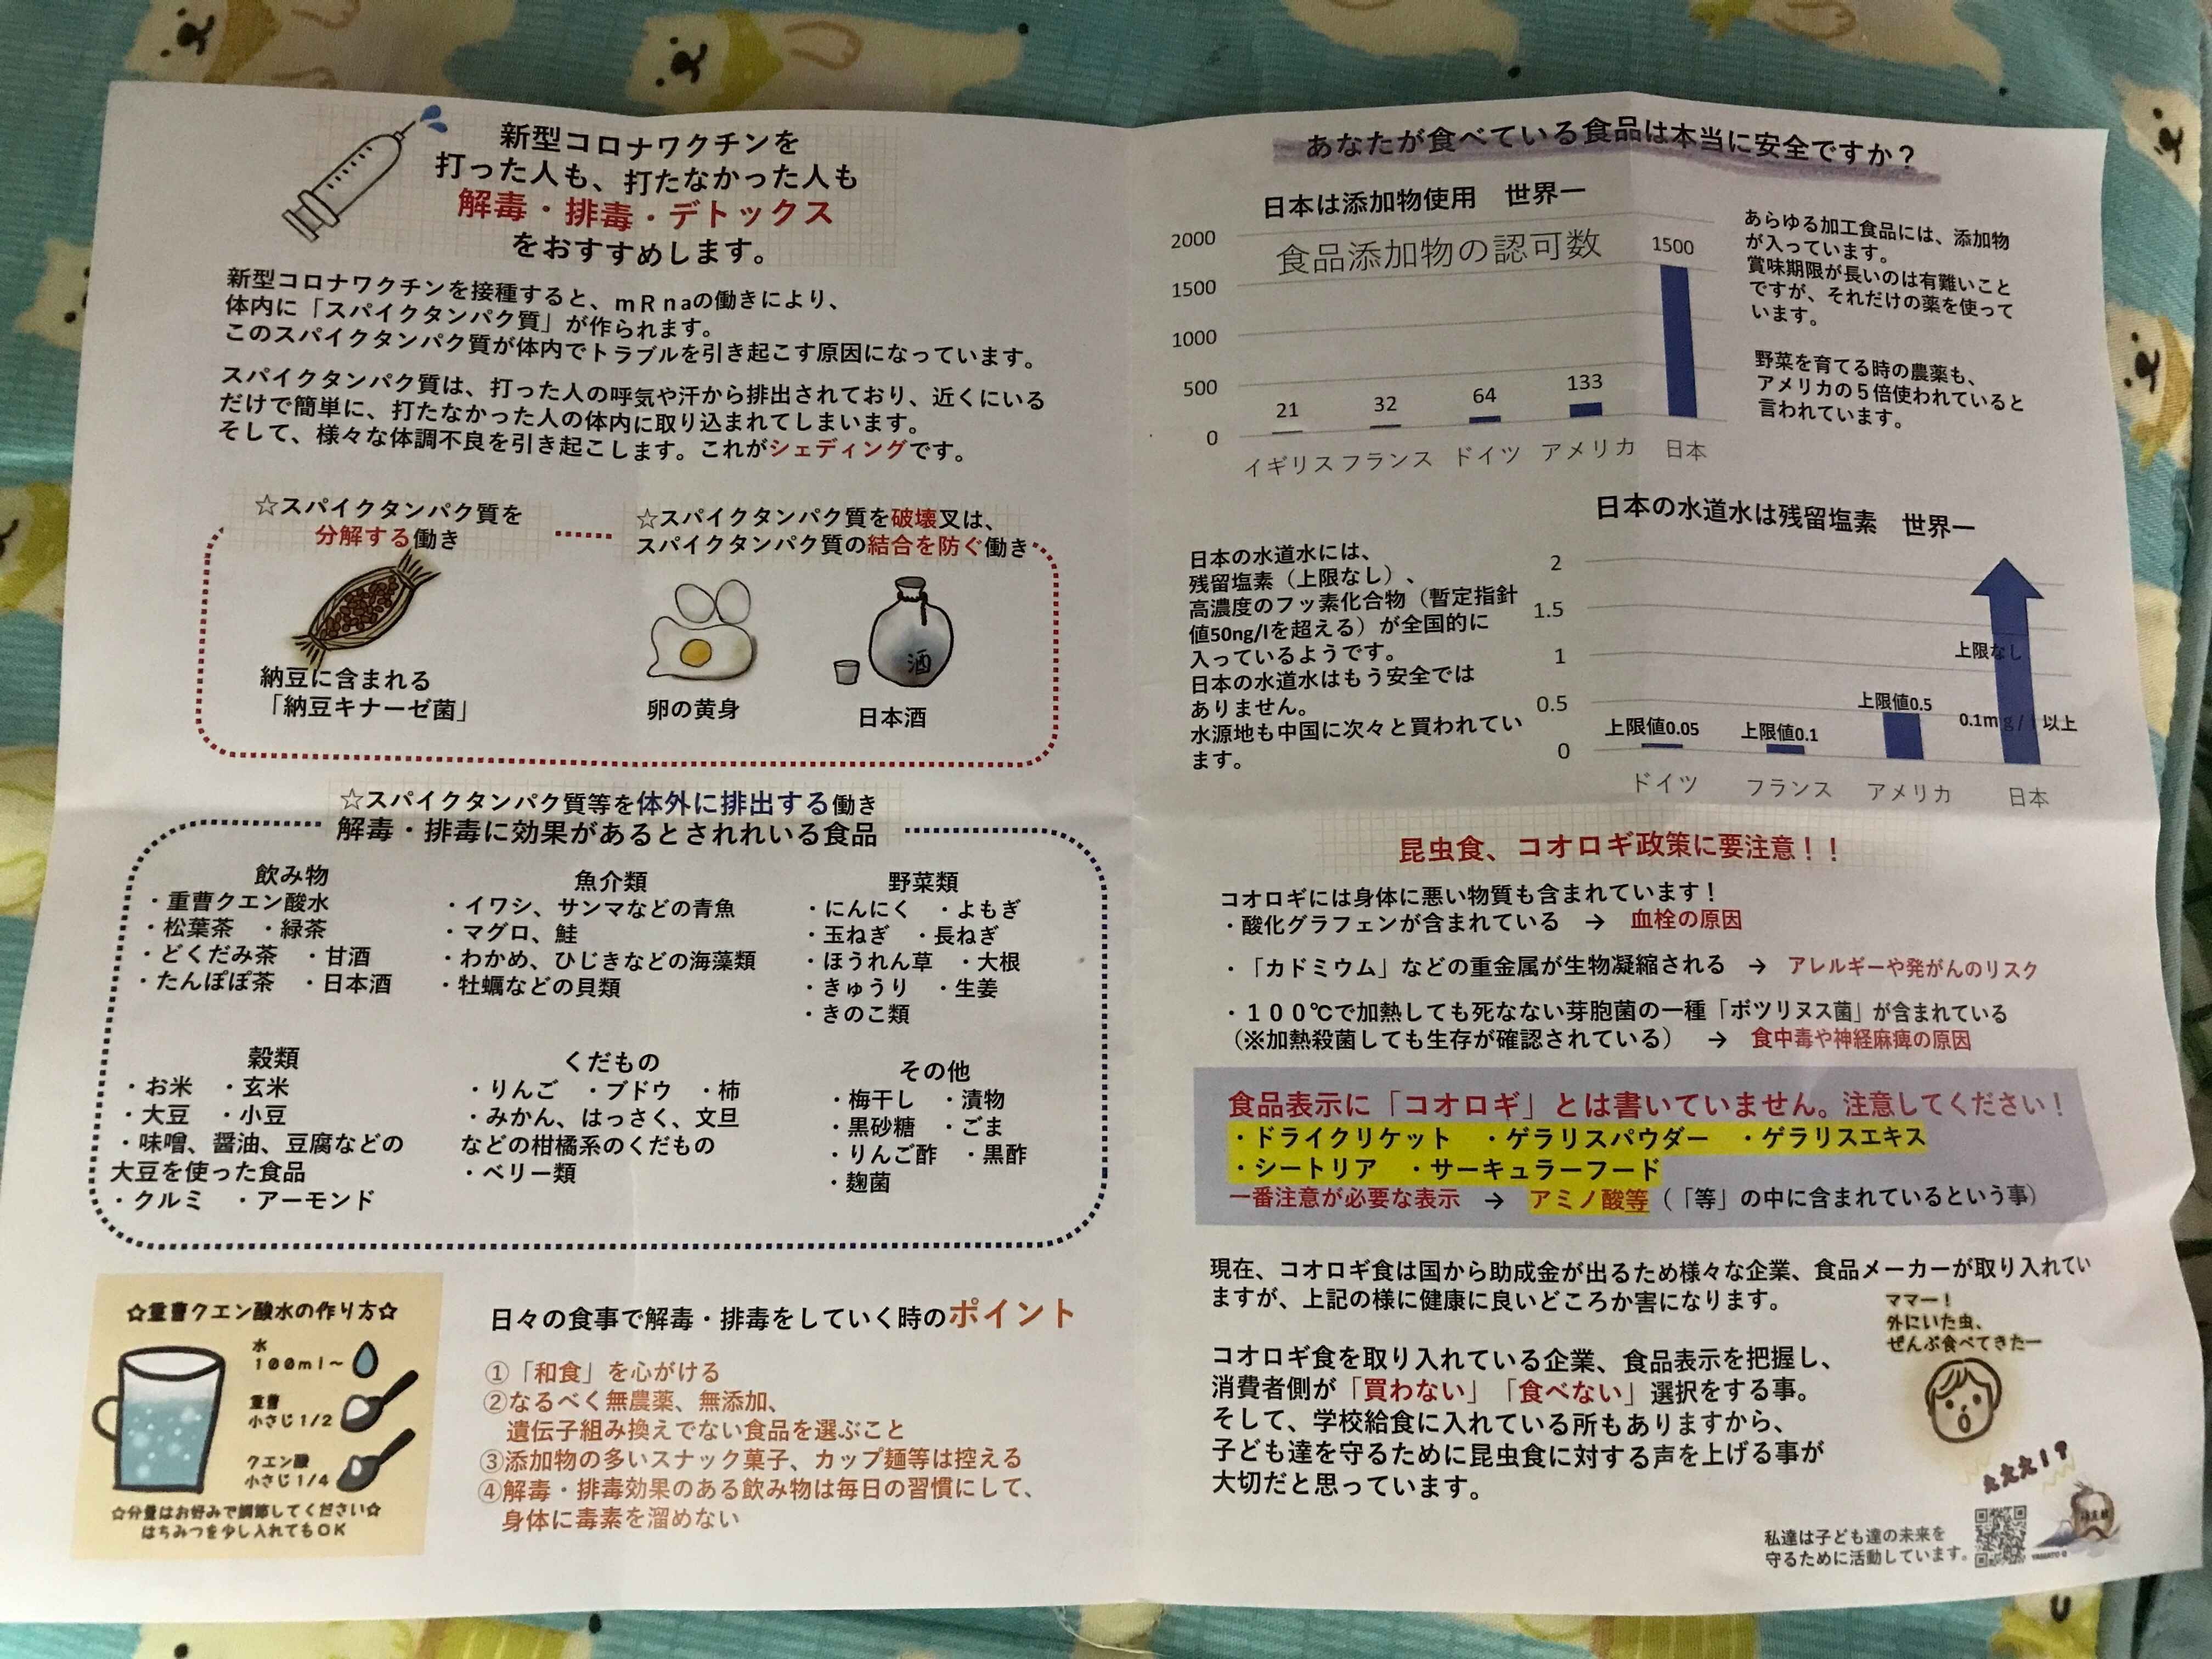 新型コロナワクチンを
打った人も、打たなかった人も
解毒・排毒・デトックス
をおすすめします。
新型コロナワクチンを接種すると、mRnaの働きにより、
体内に「スパイクタンパク質」が作られます。
このスパイクタンパク質が体内でトラブルを引き起こす原因になっています。
スパイクタンパク質は、打った人の呼気や汗から排出されており、近くにいる
だけで簡単に、打たなかった人の体内に取り込まれてしまいます。
そして、様々な体調不良を引き起こします。これがシェディングです。
☆スパイクタンパク質を
分解する働き
納豆に含まれる
「納豆キナーゼ菌」
☆スパイクタンパク質を破壊又は、
スパイクタンパク質の結合を防ぐ働き
酒
卵の黄身
日本酒
☆スパイクタンパク質等を体外に排出する働き
解毒・排毒に効果があるとされれいる食品
飲み物
・重曹クエン酸水
・松葉茶 ・緑茶
・どくだみ茶 ・甘酒
・たんぽぽ茶 ・日本酒
魚介類
・イワシ、サンマなどの青魚
・マグロ、鮭
・わかめ、ひじきなどの海藻類
・牡蠣などの貝類
野菜類
・にんにく ・よもぎ
・玉ねぎ ・長ねぎ
・ほうれん草 ・大根
・きゅうり ・生姜
・きのこ類
穀類
・お米 ・玄米
・大豆 ・小豆
・味噌、醤油、豆腐などの
大豆を使った食品
・クルミ ・アーモンド
くだもの
・りんご ・ブドウ ・柿
・みかん、はっさく、文旦
などの柑橘系のくだもの
・ベリー類
その他
・梅干し ・漬物
・黒砂糖 ・ごま
・りんご酢 ・黒酢
・麹菌
☆重曹クエン酸水の作り方☆
水
100ml～
重曹
小さじ1/2
クエン酸
小さじ1/4
☆分量はお好みで調節してください☆
はちみつを少し入れてもOK
日々の食事で解毒・排毒をしていく時のポイント
①「和食」を心がける
②なるべく無農薬、無添加、
遺伝子組み換えでない食品を選ぶこと
③添加物の多いスナック菓子、カップ麺等は控える
④解毒・排毒効果のある飲み物は毎日の習慣にして、
身体に毒素を溜めない
あなたが食べている食品は本当に安全ですか？
日本は添加物使用 世界一
食品添加物の認可数
2000
1500
1000
500
0
21
32
64
133
1500
イギリス フランス ドイツ アメリカ 日本
あらゆる加工食品には、添加物
が入っています。
賞味期限が長いのは有難いこと
ですが、それだけの薬を使って
います。
野菜を育てる時の農薬も、
アメリカの５倍使われていると
言われています。
日本の水道水は残留塩素 世界一
日本の水道水には、
残留塩素（上限なし）、
高濃度のフッ素化合物（暫定指針
値50ng/lを超える）が全国的に
入っているようです。
日本の水道水はもう安全では
ありません。
水源地も中国に次々と買われてい
ます。
2
1.5
1
0.5
0
上限値0.05
上限値0.1
上限値0.5
上限なし
0.1mg/l以上
ドイツ フランス アメリカ 日本
昆虫食、コオロギ政策に要注意！！
コオロギには身体に悪い物質も含まれています！
・酸化グラフェンが含まれている → 血栓の原因
・「カドミウム」などの重金属が生物凝縮される → アレルギーや発がんのリスク
・１００℃で加熱しても死なない芽胞菌の一種「ボツリヌス菌」が含まれている
（※加熱殺菌しても生存が確認されている） → 食中毒や神経麻痺の原因
食品表示に「コオロギ」とは書いていません。注意してください！
・ドライクリケット ・ゲラリスパウダー ・ゲラリスエキス
・シートリア ・サーキュラーフード
一番注意が必要な表示 → アミノ酸等（「等」の中に含まれているという事）
現在、コオロギ食は国から助成金が出るため様々な企業、食品メーカーが取り入れてい
ますが、上記の様に健康に良いどころか害になります。
コオロギ食を取り入れている企業、食品表示を把握し、
消費者側が「買わない」「食べない」選択をする事。
そして、学校給食に入れている所もありますから、
子ども達を守るために昆虫食に対する声を上げる事が
大切だと思っています。
ママー！
外にいた虫、
ぜんぶ食べてきたー
えええ！？
私達は子ども達の未来を
守るために活動しています。